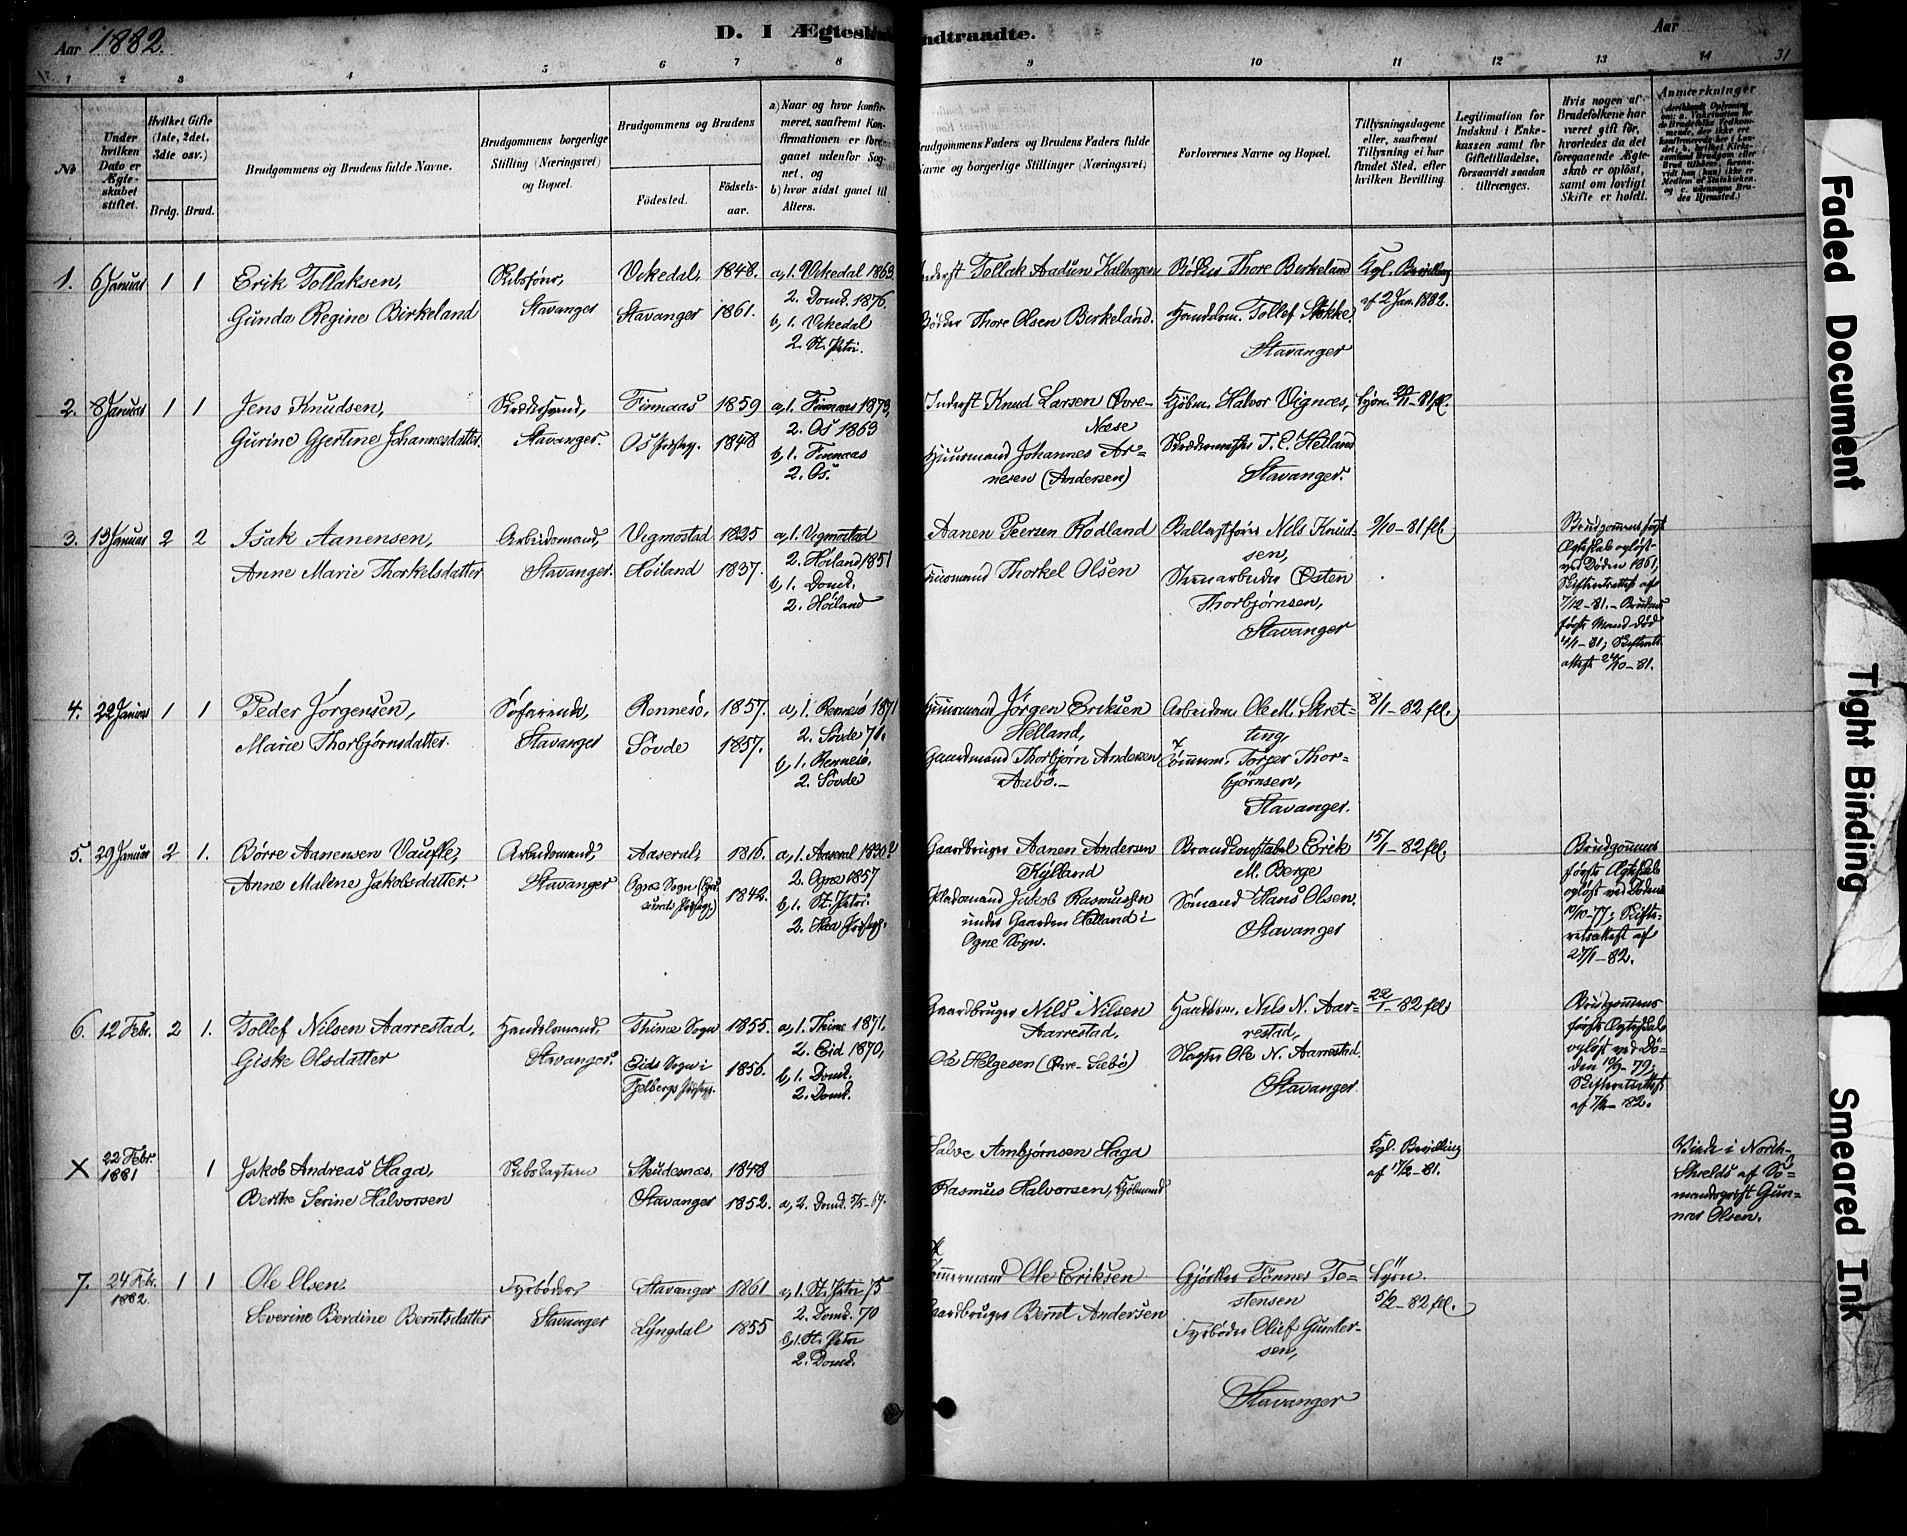 Aar 1882.
D. I Ægtesk
ndtraadte.
Aar
31
1 2 3 4 5 6 7 8 9 10 11 12 13 14
No
Under hvilken Dato er Ægteskabet stiftet.
Hvilket Gifte (1ste, 2det, 3die osv.)
Brdg. Brud.
Brudgommens og Brudens fulde Navne.
Brudgommens borgerlige Stilling (Næringsvei) og Bopæl.
Brudgommens og Brudens
Fødested.
Fødselsaar.
a) Naar og hvor konfirmeret, saafremt Konfirmationen er foregaaet udenfor Sognet, og
b) hvor sidst gaaet til Alters.
Brudgommens Faders og Brudens Faders fulde Navne og borgerlige Stillinger (Næringsvei)
Forlovernes Navne og Bopæl.
Tillysningsdagene eller, saafremt Tillysning ei har fundet Sted, efter hvilken Bevilling.
Legitimation for Indskud i Enkekassen samt for Giftetilladelse, forsaavidt saadan tiltrænges.
Hvis nogen af Brudefolkene har været gift før, hvorledes da det foregaaende Ægteskab er opløst, samt om lovligt Skifte er holdt.
Anmærkninger
1. 6 Januar 1 1
Erik Tollaksen,
Gunda Regine Birkeland
Stavanger
Vikedal, 1848.
Stavanger 1861.
a, 1. Vikedal 1863
2. Domk. 1876.
b, 1. Vikedal
2. St. Petri.
Inderst Tollak Aadun Kalhagen
Bødker Thore Olsen Berkeland.
Bødker Thore Berkeland
Handelsm. Tollef Stokke
Stavanger
Kgl. Bevilling
af 2 Jan. 1882.
2. 8 Januar 1 1
Jens Knudsen,
Gurine Gjertine Johannesdatter.
Skrædersvend,
Stavanger.
Finnaas 1859
Os Præstegj. 1848
a, 1. Finnaas 1873,
2. Os 1863
b, 1. Finnaas
2. Os.
Inderst Knud Larsen Øvre-
Næse
Huusmand Johannes Ar-
nesen (Andersen)
Kjøbm. Halvor Vignæs,
Skrædermester T. C. Helland
Stavanger.
3. 13 Januar 2 2
Isak Aanensen,
Anne Marie Thorkelsdatter
Arbeidsmand,
Stavanger.
Vigmostad 1825
Høiland 1837.
a, 1. Vigmostad
2. Høiland 1851
b, 1. Domk.
2. Høiland
Aanen Peersen Rødland
Huusmand Thorkel Olsen
Ballastfører Nils Knud-
sen,
Stenarbeider Østen
Thorbjørnsen,
Stavanger
9/10 - 81 fl.
Brudgommens første
Ægteskab opløst
ved Døden 1861,
Skifteretsattest af
7/12 - 81. - Brudens
første Mand død
4/1 - 81; Skifterets-
attest 24/10 - 81.
4. 22 Januar 1 1
Peder Jørgensen,
Marie Thorbjørnsdatter.
Søfarende,
Stavanger
Rennesø, 1857.
Søvde 1857.
a, 1. Rennesø 1871
2. Søvde 71.
b, 1. Rennesø,
2. Søvde
Huusmand Jørgen Eriksen
Helland,
Gaardmand Thorbjørn Andersen
Aabø.-
Arbeidsm. Ole M. Skret-
ting,
Tømmerm. Torger Thor-
bjørnsen,
Stavanger.
8/1 - 82 fl.
5. 29 Januar 2 1.
Børre Aanensen Vaufle,
Anne Malene Jakobsdatter.
Arbeidsmand,
Stavanger
Aaseral, 1816.
Ogne Sogn 1842.
a, 1. Aaseral 1830?
2. Ogne 1857
b, 1. St. Petri.
2. Haa Præstegj.
Gaardbruger Aanen Andersen
Kylland
Pladsmand Jakob Rasmussen
under Gaarden Helland i
Ogne Sogn.
Brandkonstabel Erik
M. Berge
Sømand Hans Olsen,
Stavanger
15/1 - 82 fl.
Brudgommens
første Ægteskab
opløst ved Døden
10/10 - 77; Skifte-
retsattest af
27/1 - 82.
6. 12 Febr. 2 1.
Tollef Nilsen Aarrestad,
Giske Olsdatter
Handelsmand,
Stavanger.
Thime Sogn 1855.
Eids Sogn i
Fjelbergs Præstegj. 1856.
a, 1. Thime 1871.
2. Eid 1870,
b, 1. Domk.
2. Domk.
Gaardbruger Nils Nilsen
Aarrestad,
Ole Helgesen (Øvre-Sæbø)
Handelsm. Nils N. Aar-
restad,
Slagter Ole N. Aarrestad.
Stavanger
22/1 - 82 fl.
Brudgommens
første Ægteskab
opløst ved Dø-
den 79;
Skifteretsattest
af 7/2 - 82.
X 22 Febr. 1881 1
Jakob Andreas Haga,
Berthe Serine Halvorsen
Skibscaptein
Skudesnæs, 1848
Stavanger 1852.
a, 2. Domk. 5/5 - 67.
Salve Ambjørnsen Haga
Rasmus Halvorsen, Kjøbmand
Kgl. Bevilling
af 17/2 - 81.
Viede i North-
Shields af Sø-
mandspræst Gun-
nar Olsen.
7. 24 Febr. 1882. 1 1
Ole Olsen.
Severine Berdine Berntsdatter
Fyrbøder,
Stavanger
Stavanger 1861
Lyngdal 1855
a, 1. St. Petri 75
2. Domk. 70
b, 1. St. Petri
2. Domk.
Tømmermand Ole Eriksen
Gaardbruger Bernt Andersen
Gjørtler Tønnes To-
stensen
Fyrbøder Olief Gunder-
sen,
Stavanger
Lysn.
5/2 - 82 fl.
Faded Document
Tight Binding
Smeared Ink